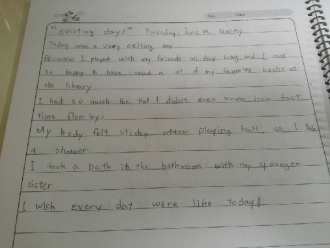 "exciting day!" Tuesday, June sunny
Today was a very exciting day
Because I played with my friends all day long and I was
so happy to have read a lot of my favorite books at
the library
I had so much fun that I didn't even know how fast
time flew by!
My body felt sticky after playing ball so I took
a shower
I took a bath in the bathroom with my younger
sister
I wish every day were like today!